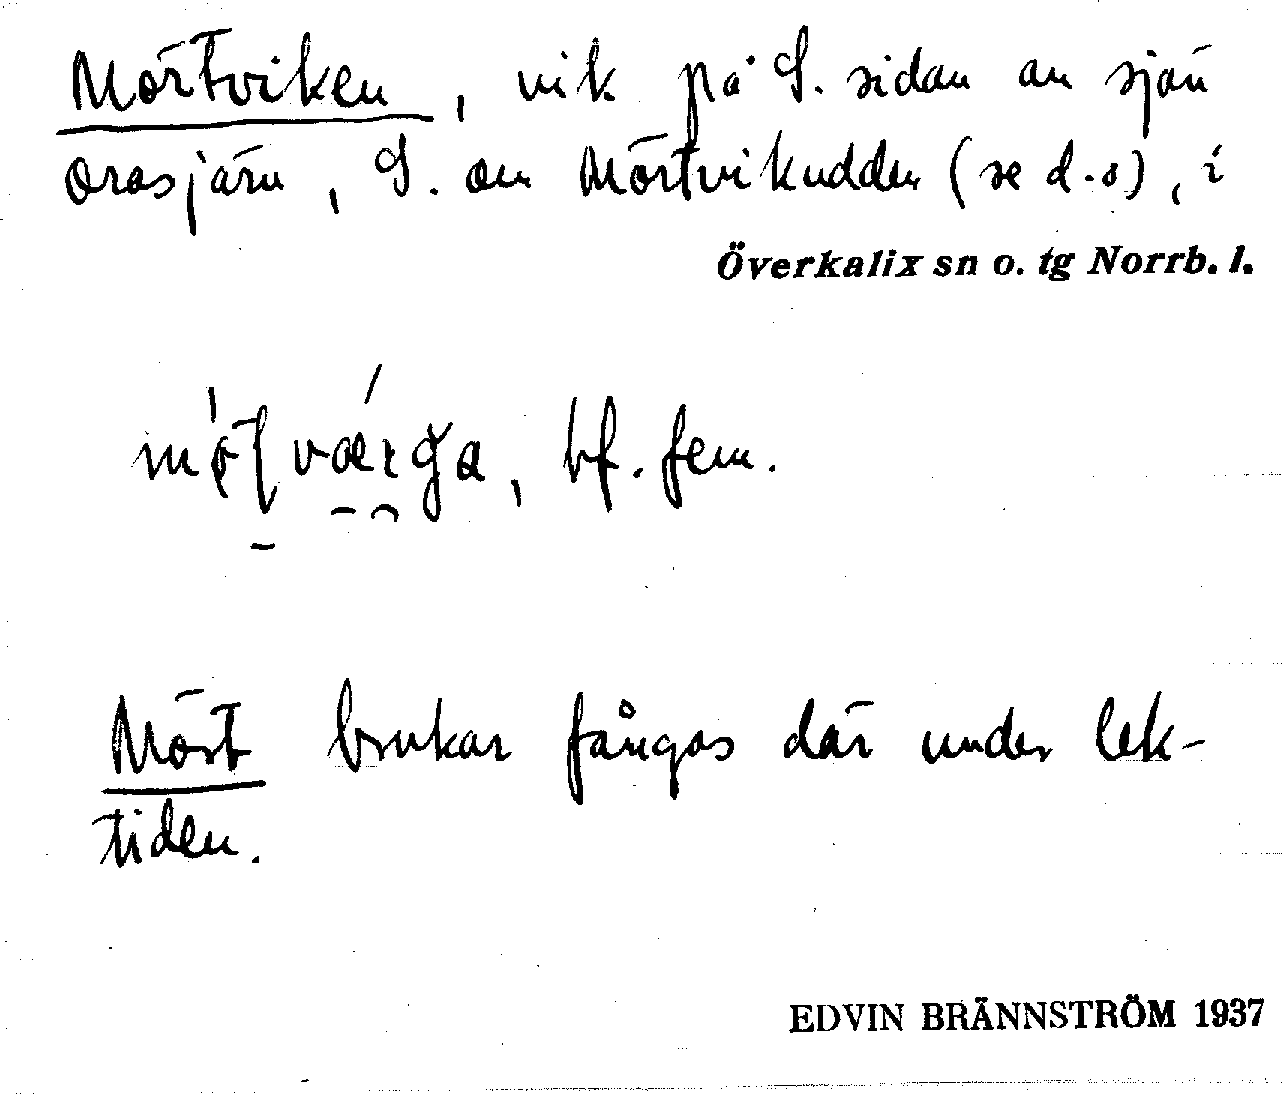 Mörtviken, vik på S. sidan av sjön
Orasjärv, S. om Mörtvikudden (se d.o), i
Överkalix sn o. tg Norrb. l.
bf. fem.
Mört brukar fångas där under lek-
tiden.
EDVIN BRÄNNSTRÖM 1937